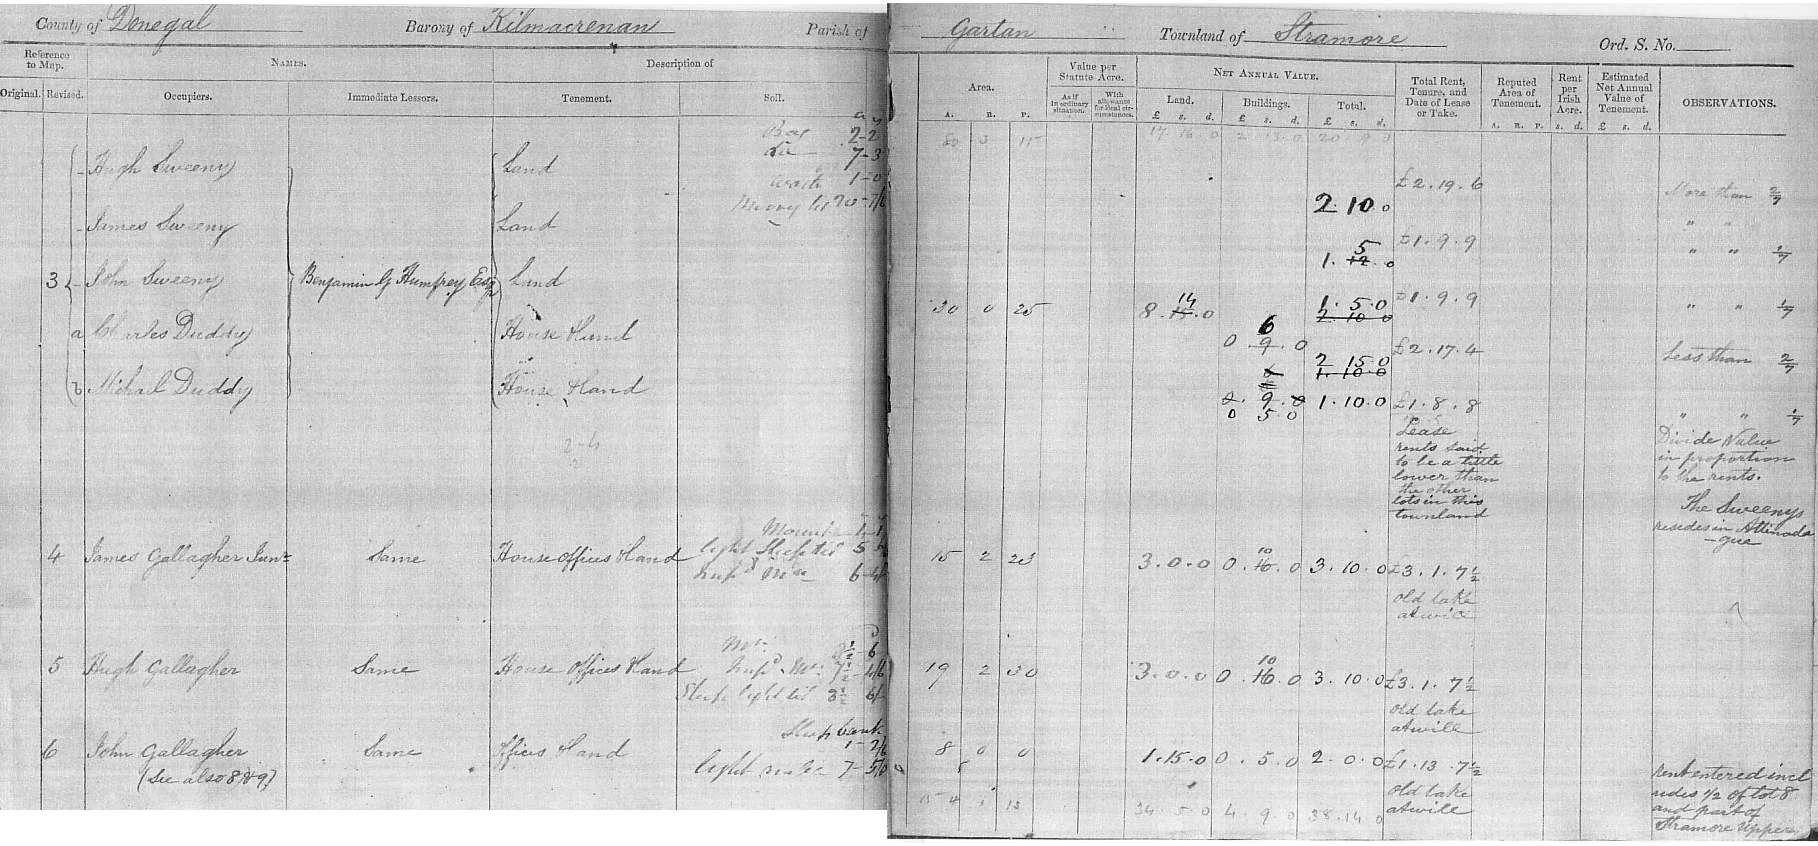 County of Donegal Barony of Kilmacrenan Parish of Gartan Townland of Stramore Ord. S. No.
Reference to Map. NAMES. Description of Area. Value per Statute Acre. NET ANNUAL VALUE. Total Rent, Tenure, and Date of Lease or Take. Reputed Area of Tenement. Rent per Irish Acre. Estimated Net Annual Value of Tenement. OBSERVATIONS.
Original. Revised. Occupiers. Immediate Lessors. Tenement. Soil. As if in ordinary situation. With allowance for local circumstances. Land. Buildings. Total.
A. R. P. £ s. d. £ s. d. £ s. d. A. R. P. s. d. £ s. d.
80 3 15 17 16 0 2 13 0 20 9 0
Bog 2-2
7-3
Hugh Sweeny Land waste 1-0 2.10.0 £2.19.6 More than 2/7
20-7/6
James Sweeny Land 1. 5 12. 0 £1.9.9 " " 1/7
3 John Sweeny Benjamin G Humfrey Esq Land 30 0 25 8. 14 15. 0 1.5.0 2.10.0 £1.9.9 " " 1/7
a Charles Duddy House & Land 0. 6 9. 0 2 15 0 1.10.0 £2.17.4 Less than 2/7
b Michael Duddy House & Land 0. 9. 0 0 5.0 1.10.0 £1.8.8 " " 1/7
Lease
rents said
to be a little
lower than
the other
lots in this
townland
Divide Value
in proportion
to the rents.
The Sweenys
resides in Attinada
-gue
4 James Gallagher Junr Same House Offices & Land 15 2 23 3.0.0 0. 10 16. 0 3.10.0 £3.1.7½
old take
at will
5 Hugh Gallagher Same House Offices & Land 19 2 30 3.0.0 0. 10 16. 0 3.10.0 £3.1.7½
old take
at will
6 John Gallagher Same Offices & Land 8 0 0 1.15.0 0.5.0 2.0.0 £1.13.7½
(See also 8 & 9)
old take
at will
rent entered incl
udes ½ of lot 8
and part of
Stramore Upper
154 1 13 34 5 0 4. 9. 0 38.14 0